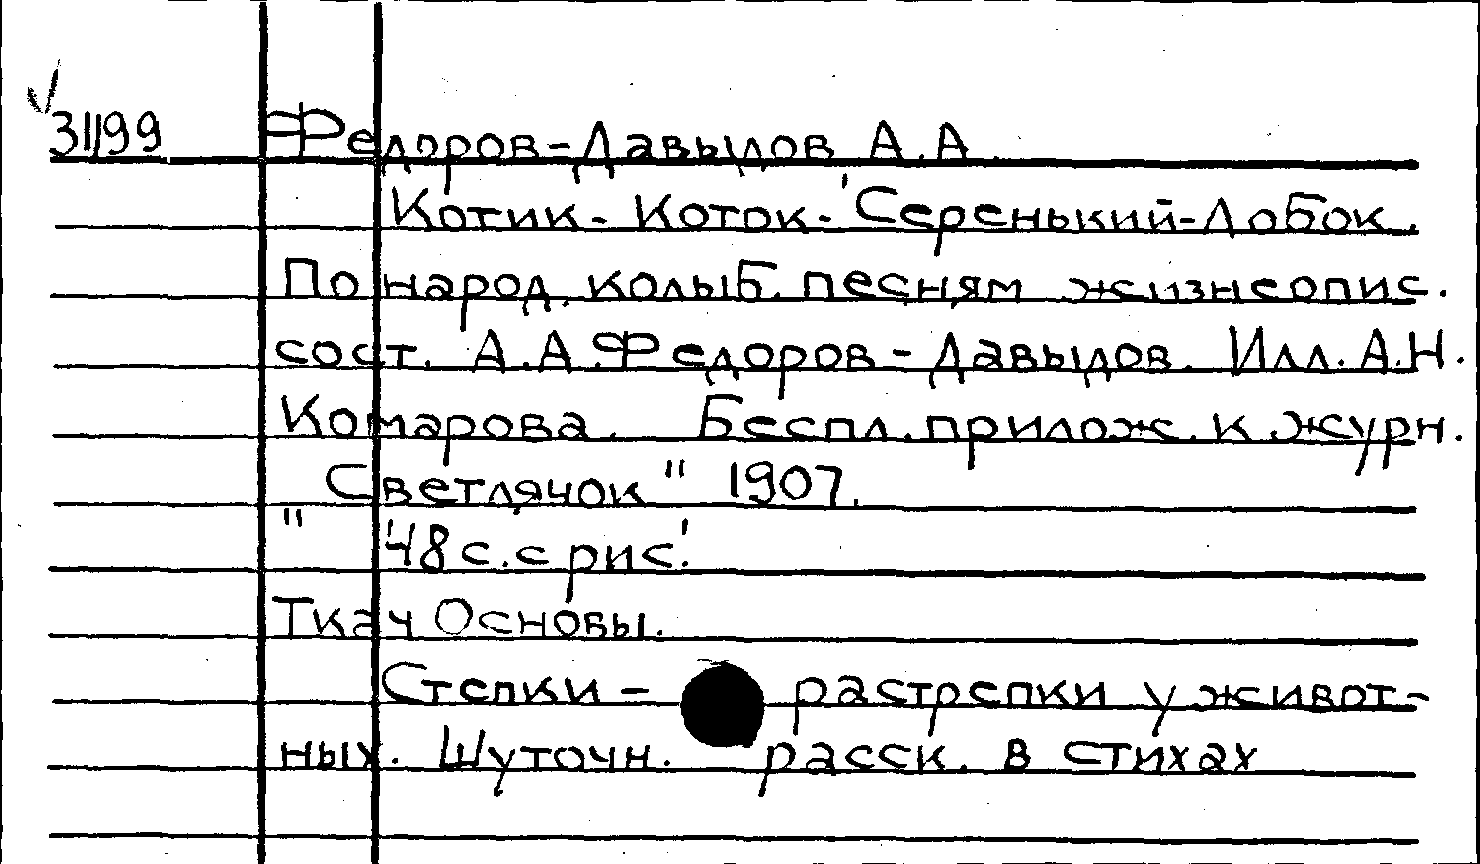 31/99 Федоров-Давыдов А.А.
Котик-Коток-'Серенький-Лобок.
По народ. колыб. песням жизнеопис.
сост. А.А.Федоров-Давыдов. Илл. А.Н.
Комарова. Беспл. прилож. к журн.
Светлячок" 1907.
" '48 с. с рис.'
Ткач Основы.
Степки - растрепки у живот-
ных. Шуточн. расск. в стихах